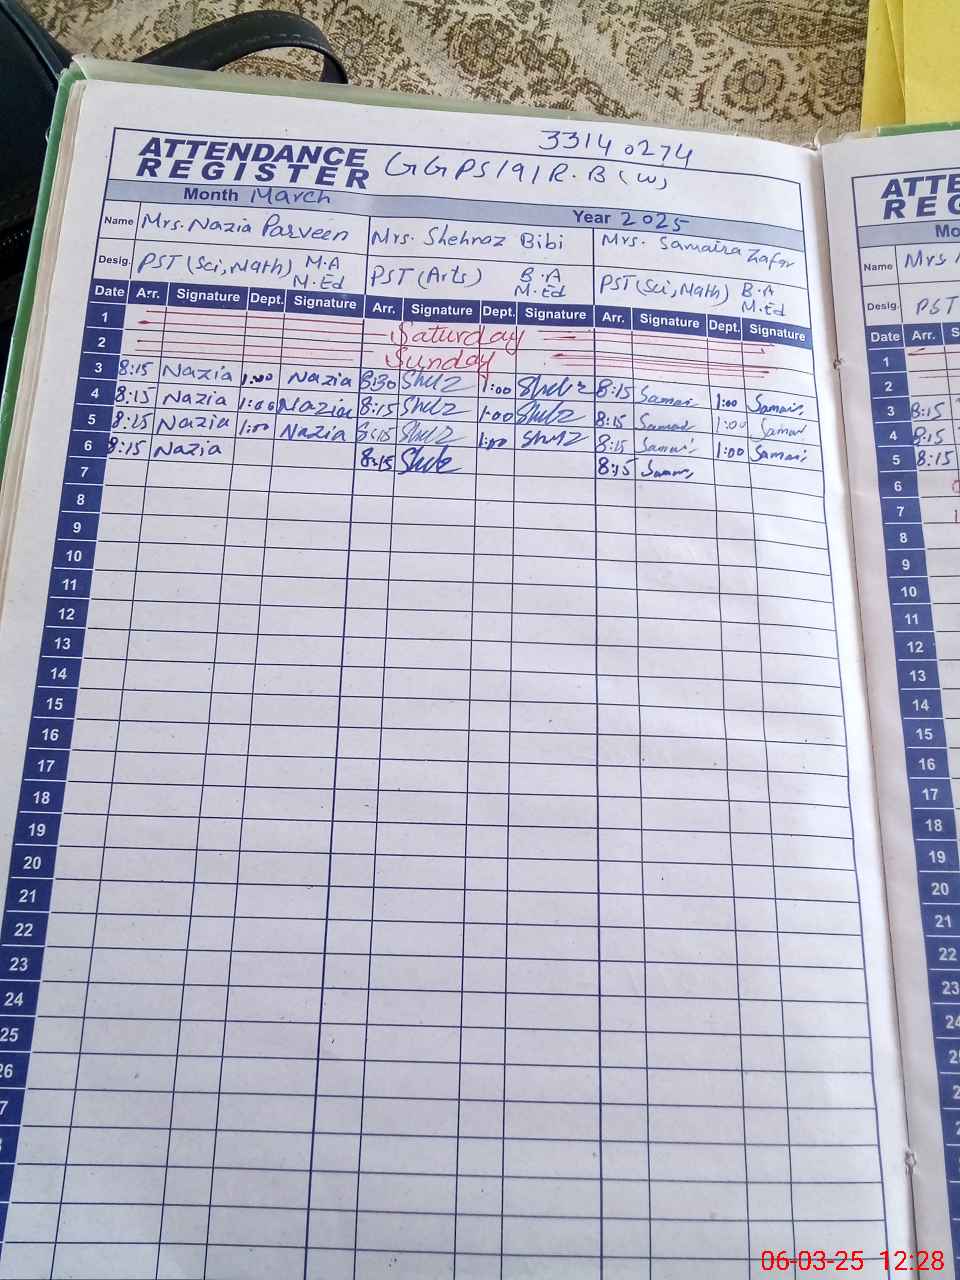 33140274
ATTENDANCE
REGISTER GGPS/91R.B(W)
Month March Year 2025
Name Mrs. Nazia Parveen Mrs. Shehnaz Bibi Mrs. Samaira Zafar
Desig. PST (Sci, Math) M.A M.Ed PST (Arts) B.A M.Ed PST (Sci, Math) B.A M.Ed
Date Arr. Signature Dept. Signature Arr. Signature Dept. Signature Arr. Signature Dept. Signature
1 Saturday
2 Sunday
3 8:15 Nazia 1:00 Nazia 8:30 1:00 8:15 1:00
4 8:15 Nazia 1:00 Nazia 8:15 1:00 8:15 1:00
5 8:15 Nazia 1:00 Nazia 8:15 1:00 8:15 1:00
6 8:15 Nazia 8:15 8:15
7
8
9
10
11
12
13
14
15
16
17
18
19
20
21
22
23
24
25
26
7
ATTE
REG
Mo
Name Mrs
Desig. PST
Date Arr. S
1
2
3 8:15
4 8:15
5 8:15
6
7
8
9
10
11
12
13
14
15
16
17
18
19
20
21
22
23
24
25
2
2
06-03-25 12:28